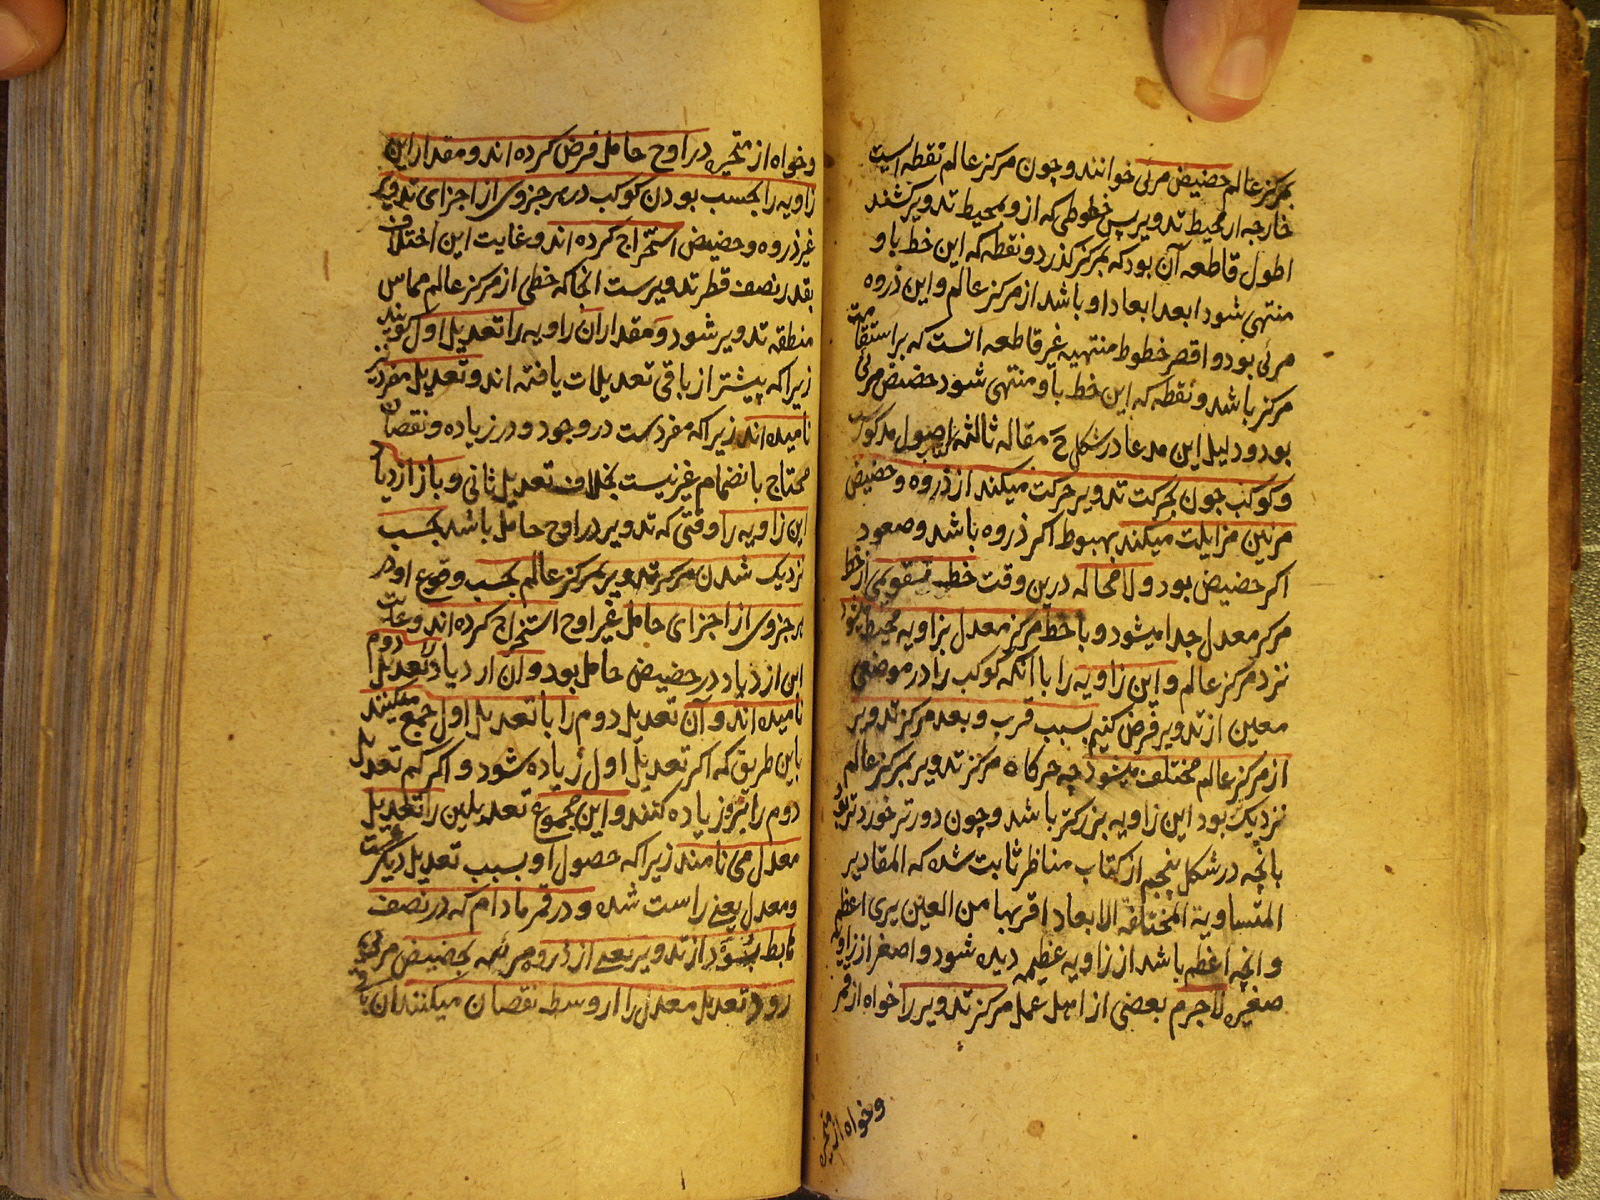 بمرکز عالم حضیض مرئی خوانند و چون مرکز عالم نقطه ایست
خارجه از محیط تدویر پس خطوطی که ازو بمحیط تدویر کشند
اطول قاطعه آن بود که بمرکز کذرد و نقطه که این خط باو
منتهی شود ابعد ابعاد او باشد از مرکز عالم و این ذروه
مرئی بود و اقصر خطوط منتهیه غیر قاطعه انست که بر استقامت
مرکز باشد و نقطه که این خط باو منتهی شود حضیض مرئی
بود و دلیل این مدعا در شکل ح مقاله ثالثه اصول مذکور
و کوکب چون بحرکت تدویر حرکت میکند از ذروه و حضیض
مرئیین مزایلت میکند بهبوط اکر ذروه باشد و صعود
اکر حضیض بود و لا محاله درین وقت خط تقویمی از خط
مرکز معدل جدا میشود و با خط مرکز معدل بزاویه محیط شود
نزد مرکز عالم و این زاویه را با انکه کوکب را در موضعی
معین از تدویر فرض کنیم بسبب قرب و بعد مرکز تدویر
از مرکز عالم مختلف میشود چه هرکاه مرکز تدویر بمرکز عالم
نزدیک بود این زاویه بزرکتر باشد و چون دورتر خوردتر بود
بانچه در شکل پنجم از کتاب مناظر ثابت شده که المقادیر
المتساویة المختلفة الابعاد اقربها من العین یری اعظم
و انچه اعظم باشد از زاویه عظیمه دیده شود و اصغر از زاویه
صغیره لاجرم بعضی از اهل عمل مرکز تدویر را خواه از قمر
و خواه از متحیره
و خواه از متحیره در اوج حامل فرض کرده اند و مقدار این
زاویه را بحسب بودن کوکب در هر جزوی از اجزای تدویر
غیر ذروه و حضیض استخراج کرده اند و غایت این اختلاف
بقدر نصف قطر تدویرست انجا که خطی از مرکز عالم مماس
منطقه تدویر شود و مقدار ان زاویه را تعدیل اول کویند
زیرا که پیشتر از باقی تعدیلات یافته اند و تعدیل مفرد نیز
نامیده اند زیرا که مفردست در وجود و در زیاده و نقصان
محتاج بانضمام غیر نیست بخلاف تعدیل ثانی و باز ازدیاد
این زاویه را وقتی که تدویر در اوج حامل باشد بحسب
نزدیک شدن مرکز تدویر بمرکز عالم بحسب وقوع او در
هر جزوی از اجزای حامل غیر اوج استخراج کرده اند و غایت
این ازدیاد در حضیض حامل بود و آن ازدیاد را تعدیل دوم
نامیده اند و آن تعدیل دوم را با تعدیل اول جمع میکنند
باین طریق که اکر تعدیل اول زیاده شود و اکر کم تعدیل
دوم را نیز زیاده کنند و این مجموع تعدیلین را تعدیل
معدل می نامند زیرا که حصول او بسبب تعدیل دیکر است
و معدل یعنی راست شده و در قمر مادام که در نصف
هابطه بود از تدویر یعنی از ذروه مرئیه بحضیض مرئی
رود تعدیل معدل را از وسط نقصان میکنند ان باقی